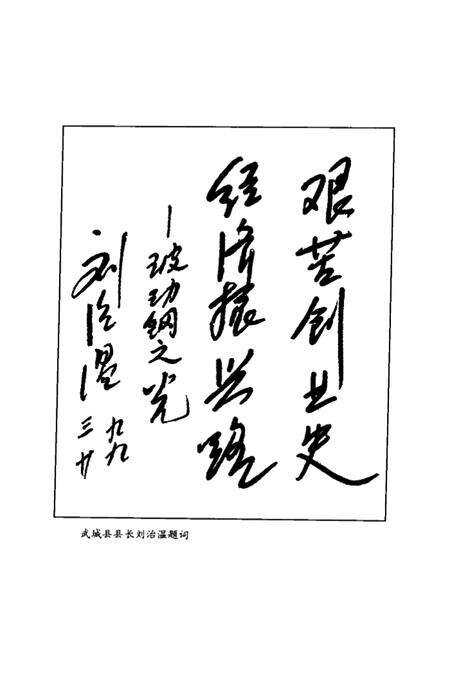 艰苦创业史
经济振兴路
—玻功钢之光
刘治温
九九
三廿
武城县县长刘治温题词